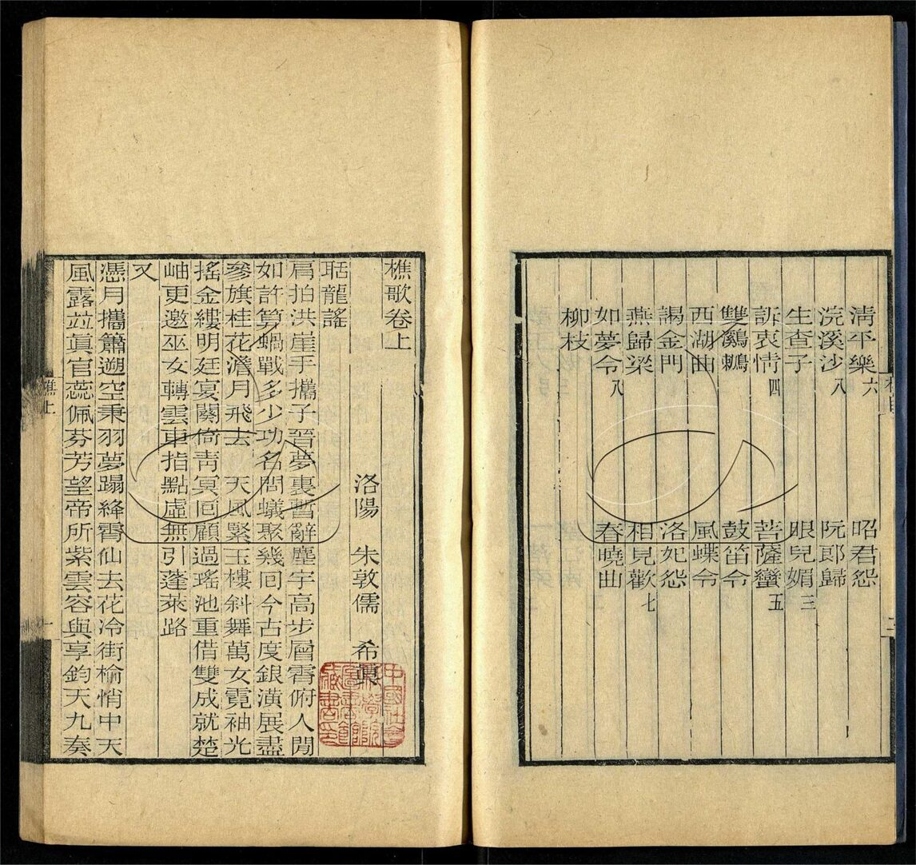 清平樂六 昭君怨
浣溪沙八 阮郎歸
生查子 眼兒媚三
訴衷情四 菩薩蠻五
雙鸂鶒 鼓笛令
西湖曲 風蝶令
謁金門 洛妃怨
燕歸梁 相見歡七
如夢令八 春曉曲
柳枝
樵歌卷上
洛陽 朱敦儒 希眞
聒龍謠
肩拍洪崖手攜子晉夢裏暫辭塵宇高步層霄俯人閒
如許算蝸戰多少功名問蟻聚幾回今古度銀潢展盡
參旗桂花澹月飛去 天風緊玉樓斜舞萬女霓袖光
搖金縷明廷宴闋倚靑冥回顧過瑤池重借雙成就楚
岫更邀巫女轉雲車指點虛無引蓬萊路
又
憑月攜簫遡空秉羽夢蹋絳霄仙去花冷街榆悄中天
風露竝眞官蕊佩芬芳望帝所紫雲容與享鈞天九奏
樵上
一